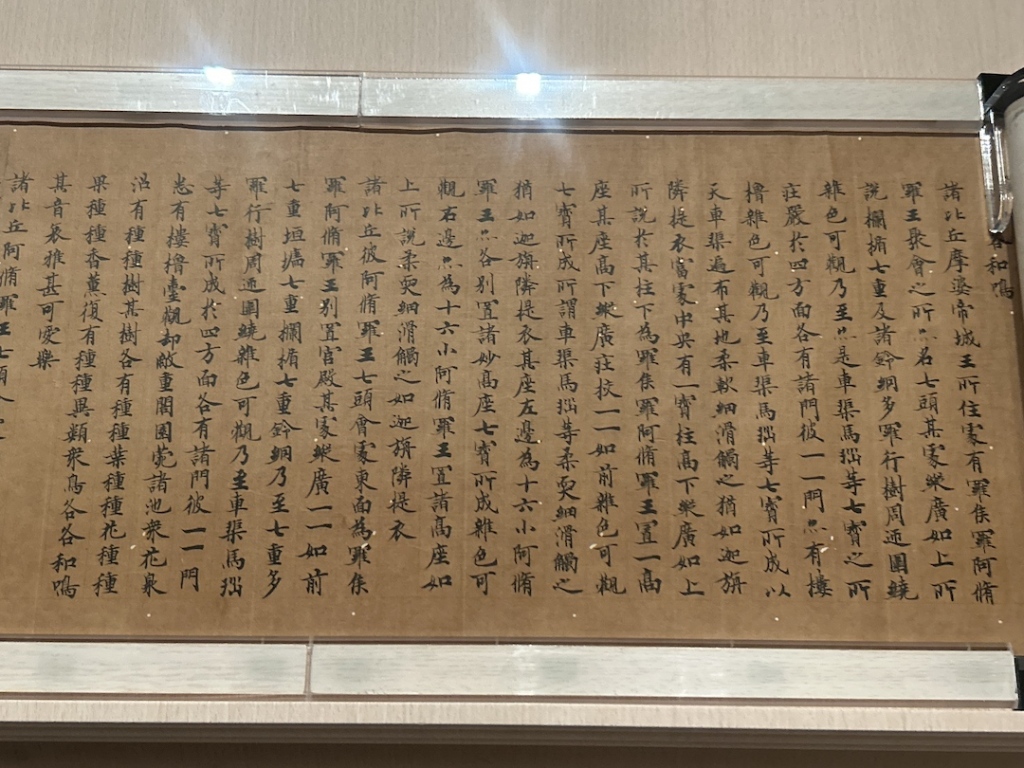 和鳴
諸比丘摩婆帝城王所住處有羅睺羅阿脩
羅王聚會之所亦名七頭其處縱廣如上所
說欄楯七重及諸鈴網多羅行樹周迊圍繞
雜色可觀乃至亦是車渠馬瑙等七寶之所
莊嚴於四方面各有諸門彼一一門亦有樓
櫓雜色可觀乃至車渠馬瑙等七寶所成以
天車渠遍布其地柔軟細滑觸之猶如迦旃
隣提衣當處中央有一寶柱高下縱廣如上
所說於其柱下為羅睺羅阿脩羅王置一高
座其座高下縱廣莊挍一一如前雜色可觀
七寶所成所謂車渠馬瑙等柔耎細滑觸之
猶如迦旃隣提衣其座左邊為十六小阿脩
羅王亦各別置諸妙高座七寶所成雜色可
觀右邊亦為十六小阿脩羅王置諸高座如
上所說柔耎細滑觸之如迦旃隣提衣
諸比丘彼阿脩羅王七頭會處東面為羅睺
羅阿脩羅王別置宮殿其處縱廣一一如前
七重垣墻七重欄楯七重鈴網乃至七重多
羅行樹周迊圍繞雜色可觀乃至車渠馬瑙
等七寶所成於四方面各有諸門彼一一門
悉有樓櫓臺觀却敵重閣園苑諸池衆花泉
沼有種種樹其樹各有種種葉種種花種種
果種種香薰復有種種異類衆鳥各各和鳴
其音哀雅甚可愛樂
諸比丘阿脩羅王七頭